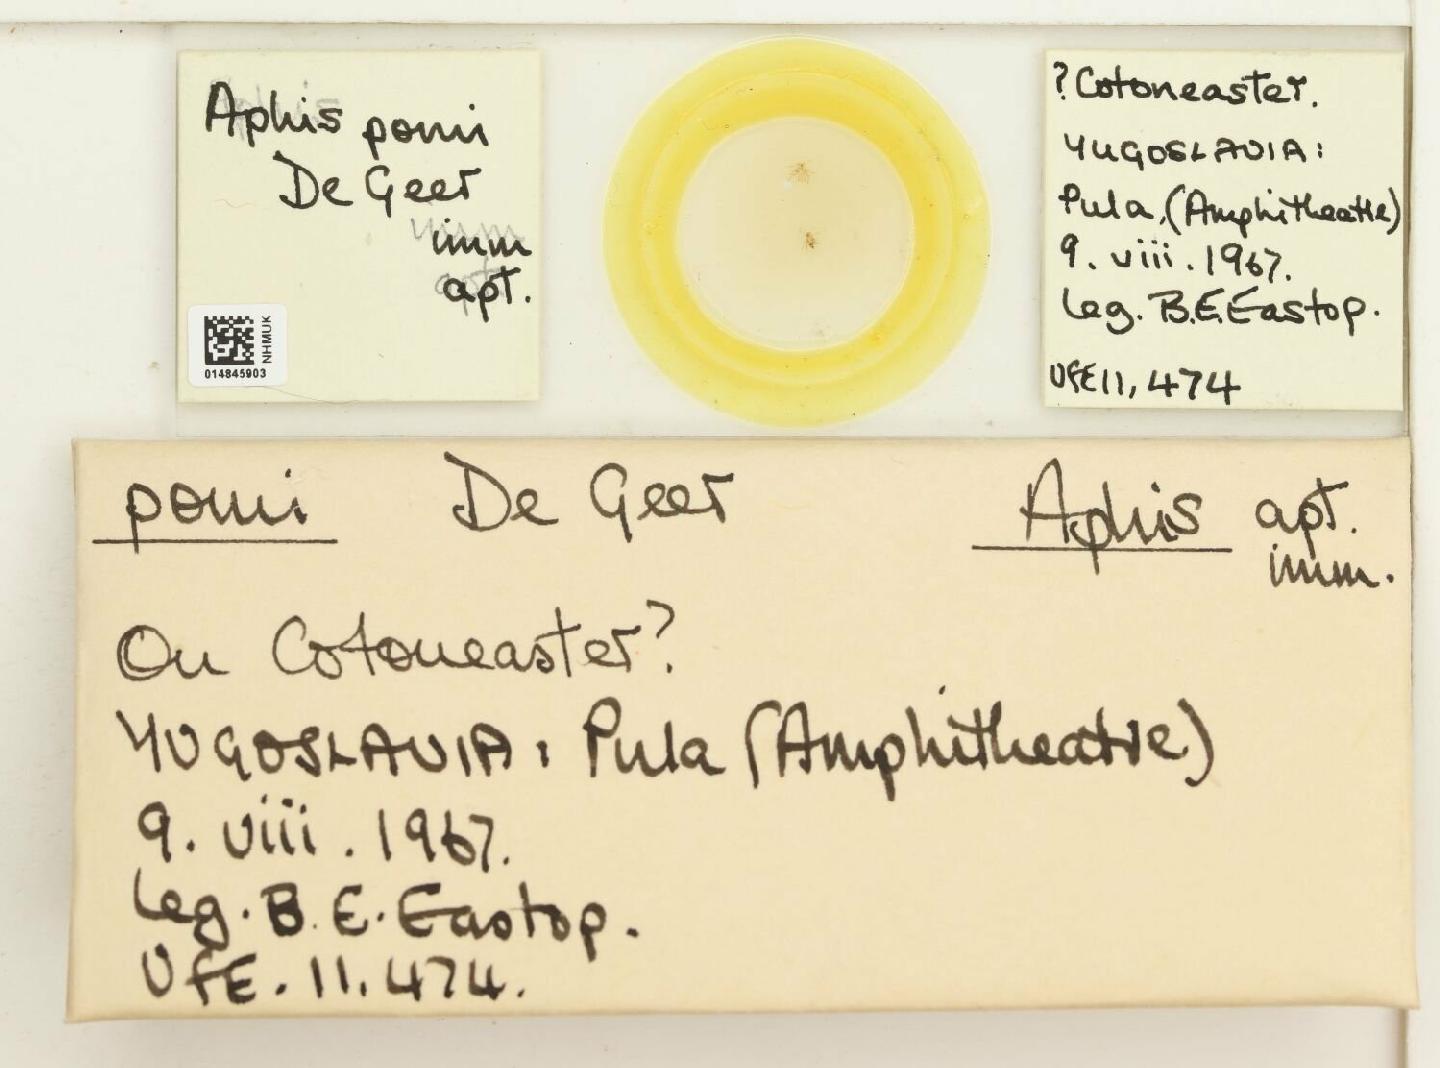 Aphis pomi
De Geer
imm
apt.
NHMUK
014845903
?Cotoneaster.
YUGOSLAVIA:
Pula, (Amphitheatre)
9. viii. 1967.
leg. B.E.Eastop.
VFE11, 474
pomi De Geer Aphis apt.
imm.
On Cotoneaster?
YUGOSLAVIA: Pula (Amphitheatre)
9. viii. 1967.
leg. B. E. Eastop.
VFE. 11. 474.